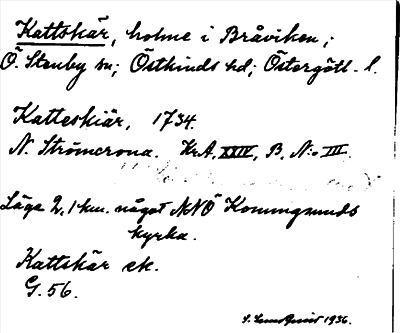 Kattskär, holme i Bråviken,;
Ö. Stenby sn; Östkinds hd; Östergötl. l.
Katteskiär, 1734.
N. Strömcrona. Kr.A. XXIV, B. N:o III.
Läge 2,1 km. något NNÖ Konungsunds
kyrka.
Kattskär ek.
G. 56.
S. Lundqvist 1936.